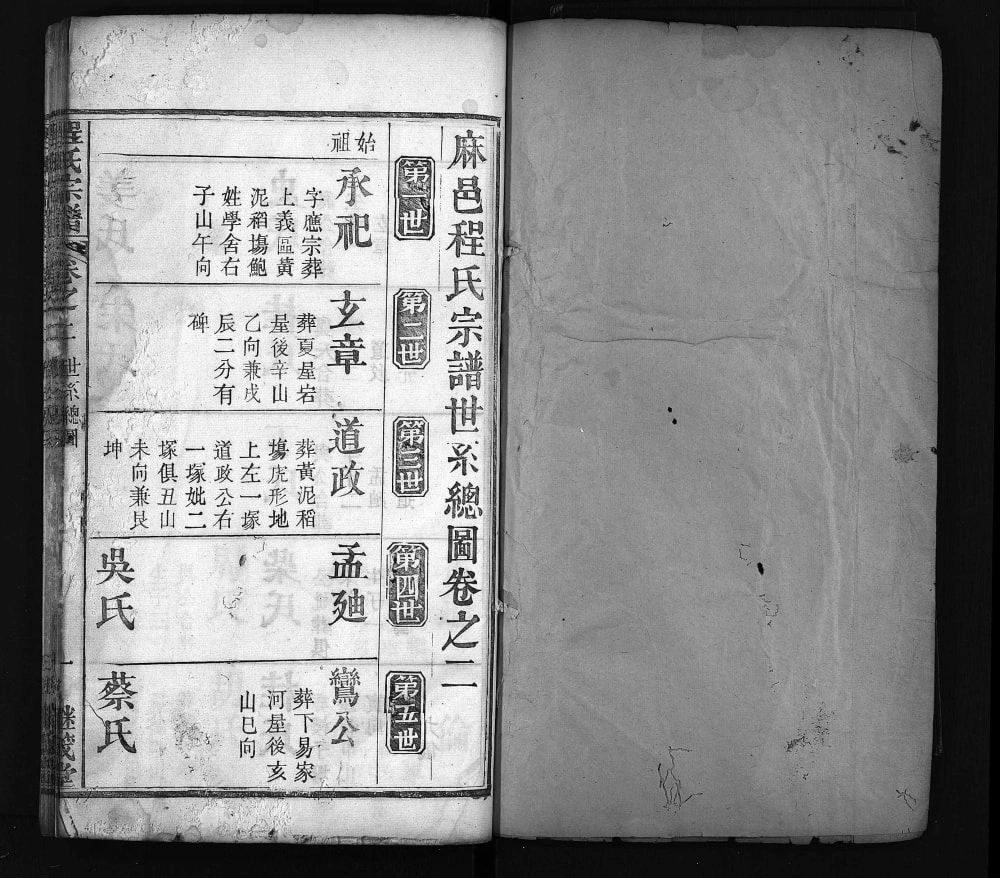 麻邑程氏宗譜世系總圖卷之二
第一世
第二世
第三世
第四世
第五世
始祖
承祀
字應宗葬
上義區黃
泥稻塲鮑
姓學舍右
子山午向
玄章
葬夏屋岩
屋後辛山
乙向兼戌
辰二分有
碑
道政
葬黃泥稻
塲虎形地
上左一塚
道政公右
一塚妣二
塚俱丑山
未向兼艮
坤
孟廸
吳氏
鸞公
葬下易家
河屋後亥
山巳向
蔡氏
程氏宗譜
卷之二
世系總圖
一